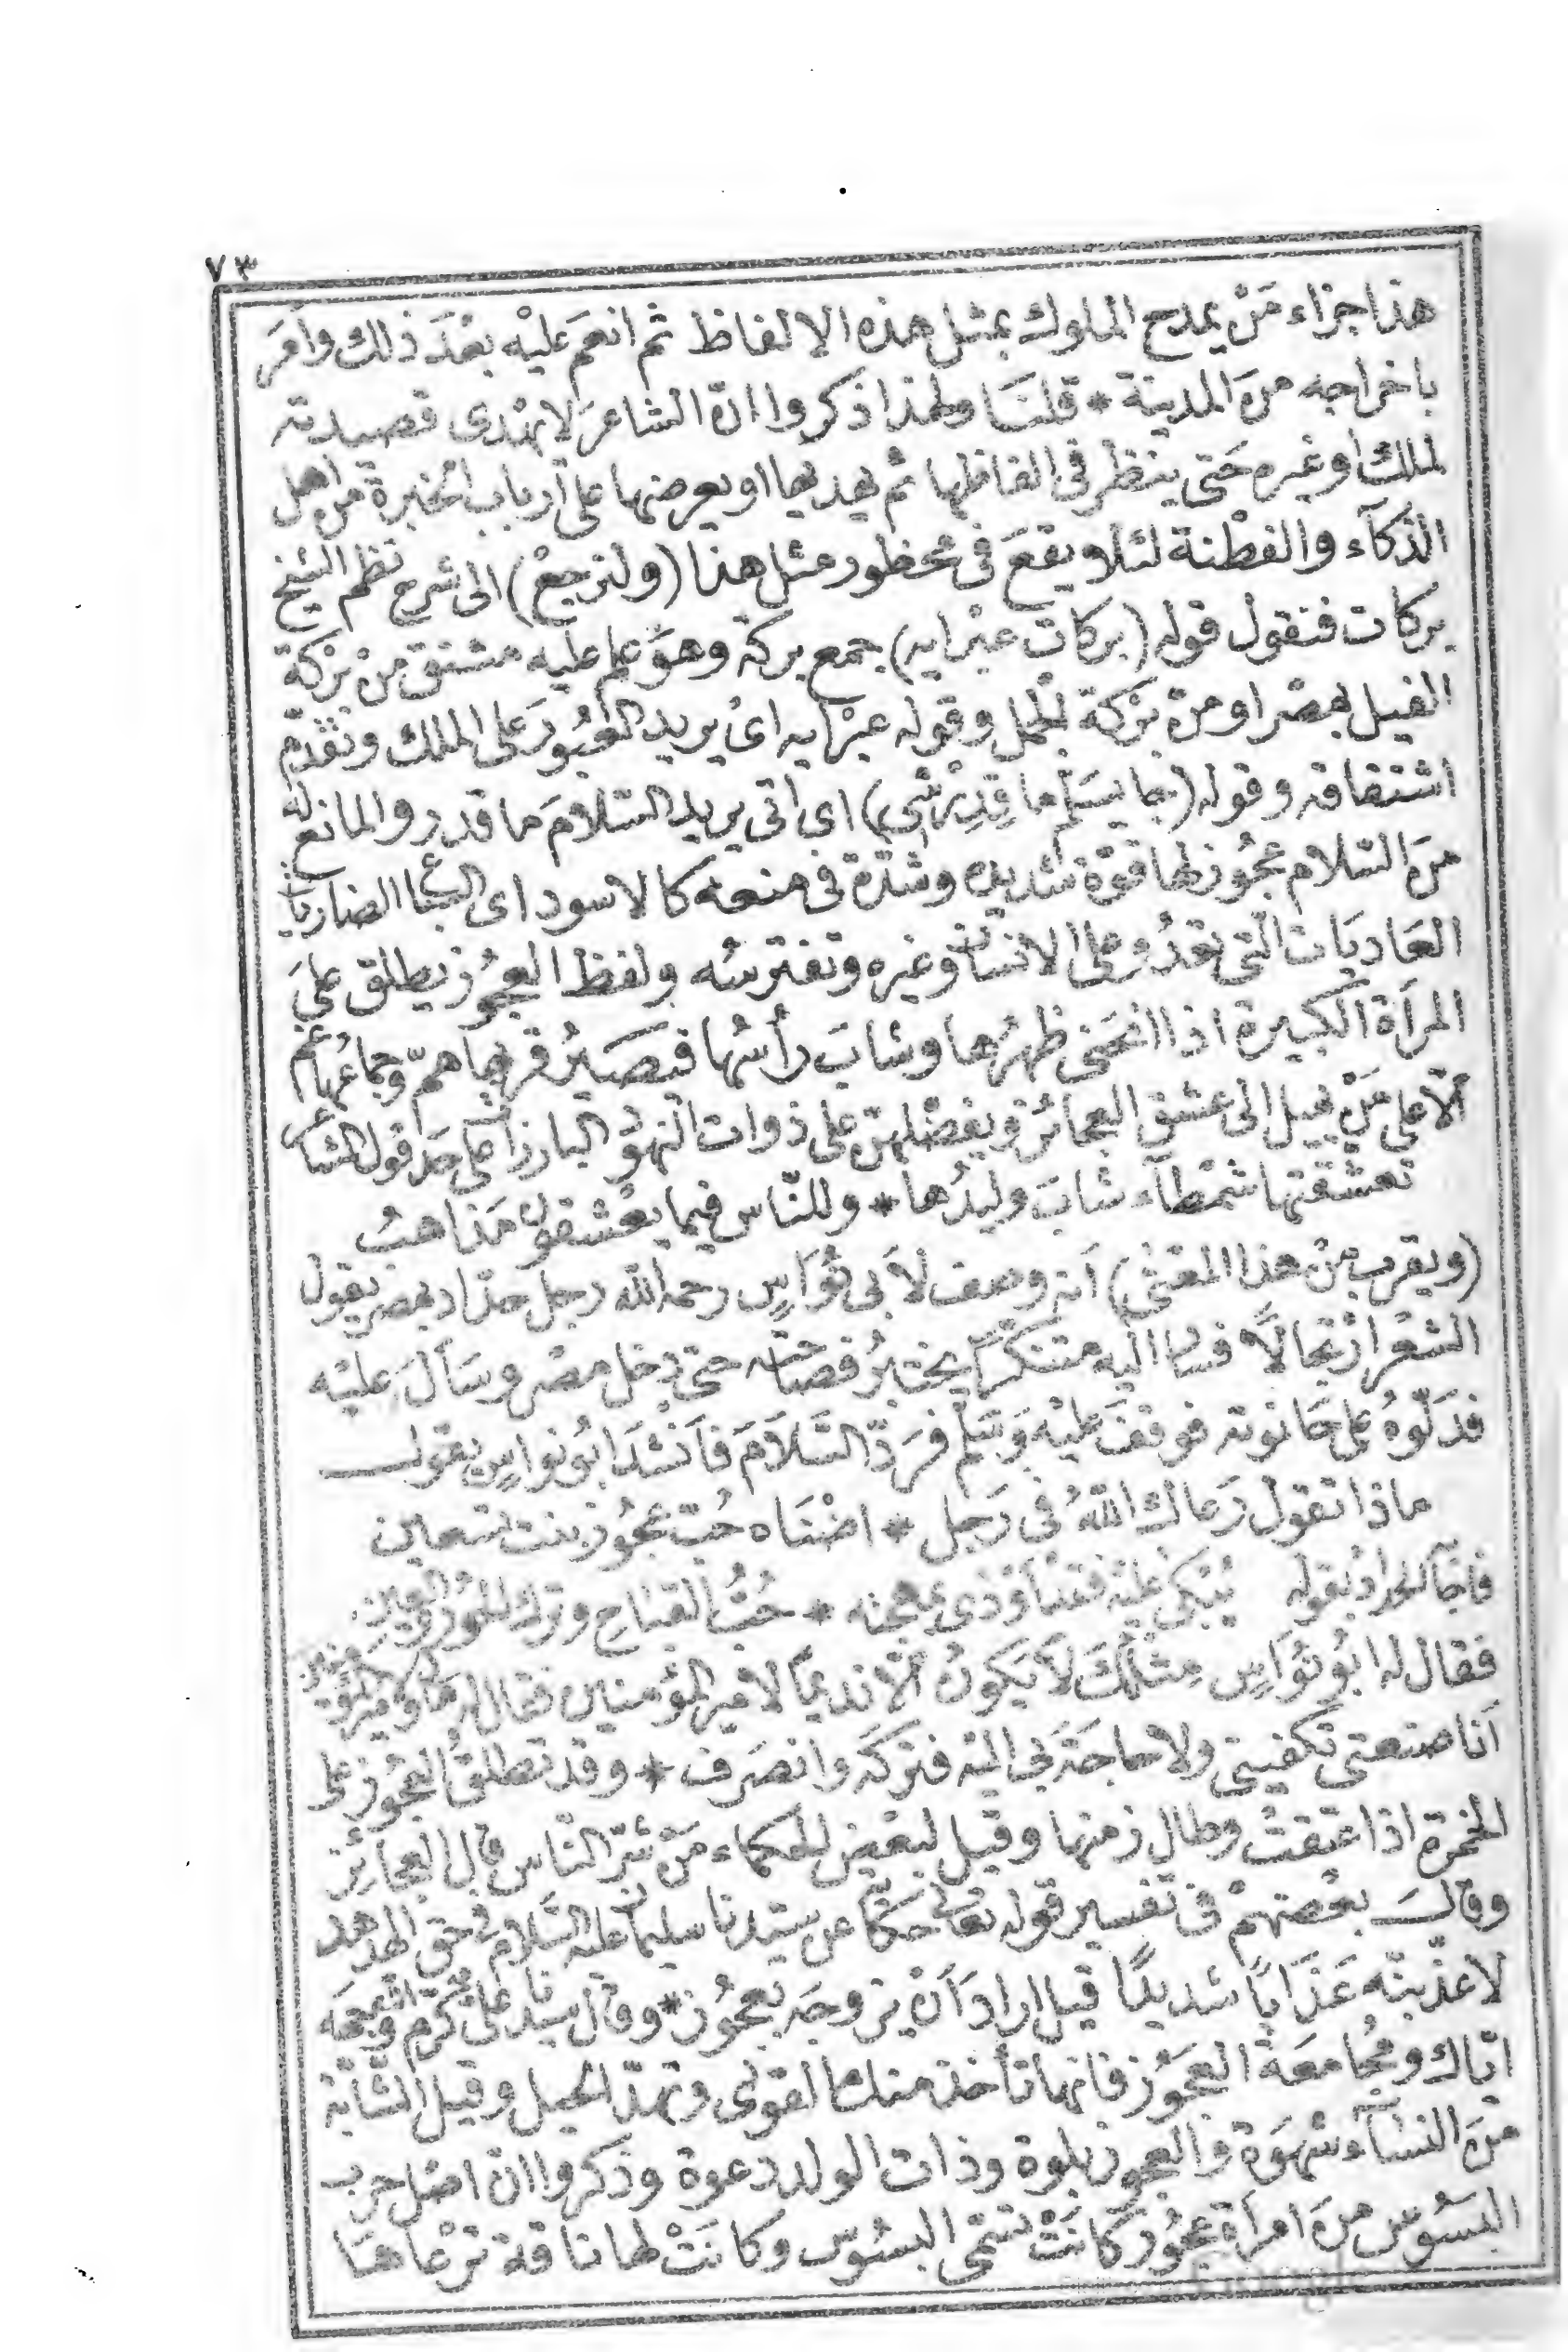 ٧٣
هذا جزاء مَنْ يمدح الملوك بمثل هذه الالفاظ ثم انعم عليْه بعْدَ ذلك وامَرَ
باخراجه منَ المدينة * قلنَا ولهذا ذكروا انّ الشاعرَ لا يهْدى قصيدته
لملك او غيره حَتى ينظر فى الفاظها ثم يهديها او يعرضها على أرباب الخبرة من اهل
الذكآء والفطْنة لئلا يقعَ فى محظور مثل هذا (ولنرجعْ) الى شرح نظم الشيخ
بركات فنقول قوله (بركات عبْرايه) جمع بركة وهوَ علم عليه مشتق منْ برْكة
الفيل بمصْر او منْ برْكة الجمل وقوله عبْرايه اىْ يريد العُبُورَ على الملك وتقدّم
اشتقاقه وقوله (جا يسَلم ما قِدِرْشى) اى اتى يريد السّلامَ ما قدر والمانع له
منَ السّلام عجُوز لها قوّة شديده وشدّة فى منعه كالاسود اى السباع الضاريات
العَاديَات الّتى تعْدُو على الانسان وغيره وتفترسُه ولفظ العجُوز يطلق علىَ
المرأة الكبيرة اذا انحَنى ظهرُها وشابَ رأسُها فتصَيرُ قربها همّ وجماعُها غم
الاّ على مَنْ يميل الى عشق العجائز ويفضّلهنّ على ذوات النهوْد البارزات على حَدّ قول الشاعر
تعشّقتها شمْطآء شابَ وليدُها * وللنّاس فيما يعْشقون مَذاهبُ
(ويقرب منْ هذا المعْنىٰ) أنه وصف لأبى نُوَاسٍ رحمه الله رجل حدّاد بمصر يقول
الشعْر ارْتجالًا فسَار اليه متنكّرًا يختبرُ فصَاحته حتى دخل مصْر وسَألَ عليْه
فدَلّوهُ على حَانوته فوقفَ عليْه وَسَلّم فرَدّ السَّلَامَ فأنشدَ ابُونواسٍ يقول
ماذا تقول رَعاك اللهُ فى رَجل * اضْنَاه حُبّ عجُوز بنت تسعين
فأجَابه الحداد بقوله يُبْكىٰ عليْه فقدْ أوْدٰى بمهجته * حُبُّ القباح وترك الخُرّد العين
فقال له ابُونُوَاسٍ مِثْلُكَ لا يَكونُ الّا نديمًا لامير المؤمنين فقال له
أنا صنعتى تكفينى ولا حاجَةَ لى اليْه فتركَه وانصَرف * وقد تطلقُ العجُوز على
الخمرة اذا عتقتْ وطال زمنها وقيل لبعْض الحكماء مَنْ شرّ النّاس قال العجائز
وقالَ بعْضهمْ فى تفسير قوله تعَالى حكَايَةً عن سيّدنا سليمان عليه السَّلام فى حق الهدهد
لاعذّبنّه عَذَابًا شديدًا قيل ارادَ أنْ يزوجَه بعجُوز * وقال سيّدنا على كرّم الله وجهَه
ايّاك ومجُامعَةَ العجَوز فانها تأخذ منك القوىٰ وتهدّ الحيل وقيل الشّابّة
منَ النسَآء شهْوَة والعجوز بلوة وذات الولد دعوة وذكروا انّ اصْل حرب
البسُوس منَ امرأة عجُوز كانَتْ تسَمّى البسُوس وكانَتْ لها ناقة ترْعاهَا